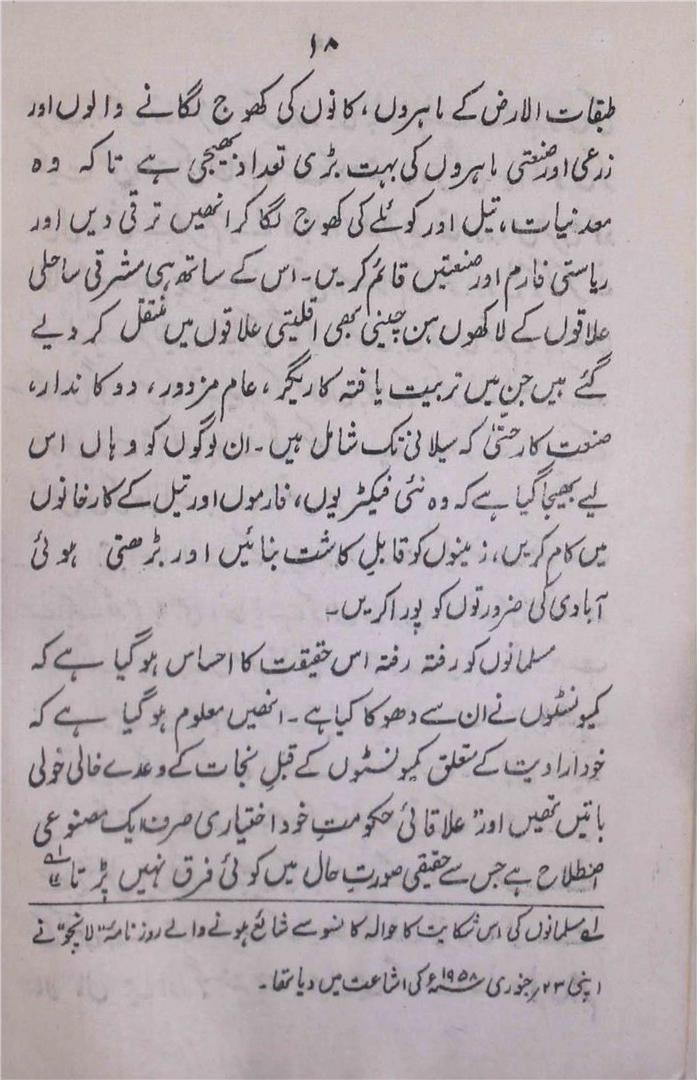 ۱۸
طبقات الارض کے ماہروں، کانوں کی کھوج لگانے والوں اور
زرعی اور صنعتی ماہروں کی بہت بڑی تعداد بھیجی ہے تاکہ وہ
معدنیات، تیل اور کوئلے کی کھوج لگا کر انھیں ترقی دیں اور
ریاستی فارم اور صنعتیں قائم کریں۔ اس کے ساتھ ہی مشرقی ساحلی
علاقوں کے لاکھوں ہن چینی بھی اقلیتی علاقوں میں منتقل کر دیے
گئے ہیں جن میں تربیت یافتہ کاریگر، عام مزدور، دوکاندار،
صنعت کار حتیٰ کہ سیلانی تک شامل ہیں۔ ان لوگوں کو وہاں اس
لیے بھیجا گیا ہے کہ وہ نئی فیکٹریوں، فارموں اور تیل کے کارخانوں
میں کام کریں، زمینوں کو قابلِ کاشت بنائیں اور بڑھتی ہوئی
آبادی کی ضرورتوں کو پورا کریں۔
مسلمانوں کو رفتہ رفتہ اس حقیقت کا احساس ہوگیا ہے کہ
کمیونسٹوں نے ان سے دھوکا کیا ہے۔ انھیں معلوم ہوگیا ہے کہ
خود ارادیت کے متعلق کمیونسٹوں کے قبلِ نجات کے وعدے خالی خولی
باتیں تھیں اور "علاقائی حکومتِ خود اختیاری صرف ایک مصنوعی
اصطلاح ہے جس سے حقیقی صورتِ حال میں کوئی فرق نہیں پڑتا" لہ
لہ مسلمانوں کی اس شکایت کا حوالہ کانسو سے شائع ہونے والے روزنامہ "لانچو" نے
اپنی ۲۳؍ جنوری ۱۹۵۸ء کی اشاعت میں دیا تھا۔